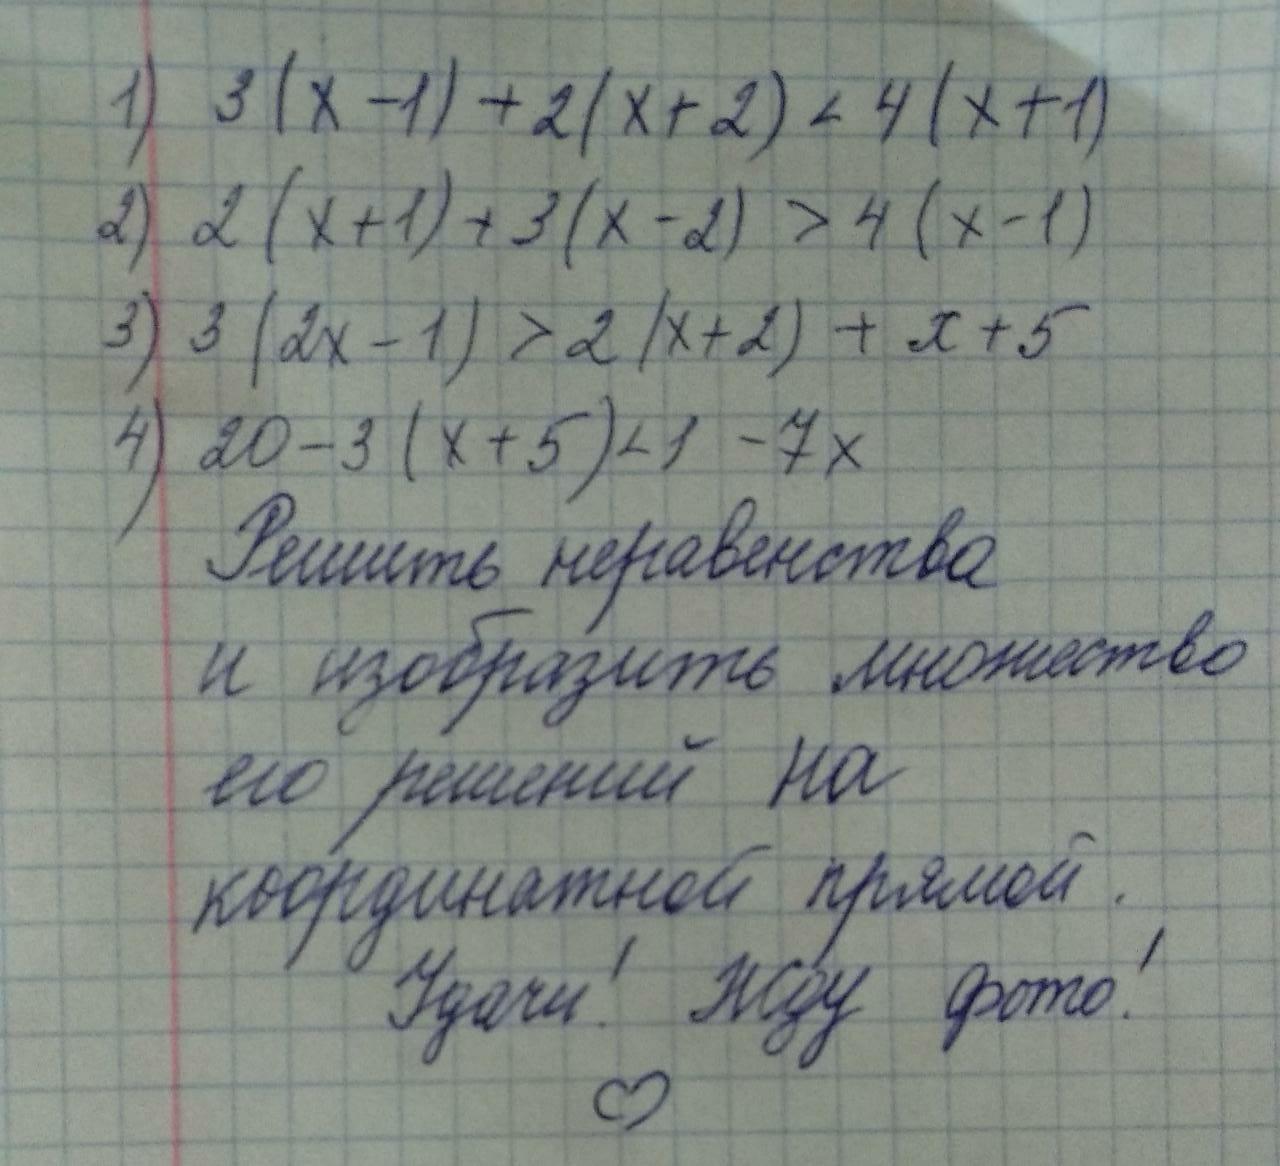 1) 3(x-1)+2(x+2)<4(x+1)
2) 2(x+1)+3(x-2)>4(x-1)
3) 3(2x-1)>2(x+2)+x+5
4) 20-3(x+5)<1-7x
Решить неравенства
и изобразить множество
его решений на
координатной прямой.
Удачи! Жду фото!